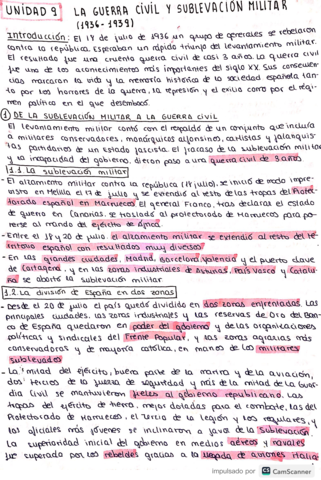 UNIDAD 9 LA GUERRA CIVIL Y SUBLEVACIÓN MILITAR
(1936-1939)
Introducción: El 18 de julio de 1936 un grupo de generales se rebelaron
contra la república. Esperaban un rápido triunfo del levantamiento militar.
El resultado fue una cruenta guerra civil de casi 3 años. La guerra civil
fue uno de los acontecimientos más importantes del siglo XX. Sus consecuen-
cias marcaron la vida y la memoria histórica de la sociedad española tan-
to por los horrores de la guerra, la represión y el exilio como por el régi-
men político en el que desembocó.
1 DE LA SUBLEVACIÓN MILITAR A LA GUERRA CIVIL
El levantamiento militar contó con el respaldo de un conjunto que incluía
a militares conservadores, monárquicos alfonsinos, carlistas y falanquis-
tas partidarios de un estado fascista. El fracaso de la sublevación militar
y la incapacidad del gobierno, dieron paso a una guerra civil de 3 años.
1.1. La sublevación militar
- El alzamiento militar contra la república (18 julio), se inició de modo impre-
visto en Melilla el 17 de julio y se extendió al resto de las tropas del Protec-
torado español en Marruecos. El general Franco, tras declarar el estado
de guerra en Canarias, se trasladó al protectorado de Marruecos para po-
nerse al mando del ejército de África.
- Entre el 18 y 20 de julio el alzamiento militar se extendió al resto del te-
rritorio español con resultados muy diversos
- En las grandes ciudades, Madrid, Barcelona, Valencia y el puerto clave
de Cartagena, y en las zonas industriales de Asturias, País Vasco y Catalu-
ña se abortó la sublevación militar
1.2. La división de España en dos zonas
- Desde el 20 de julio el país quedó dividido en dos zonas enfrentadas. Las
principales ciudades, las zonas industriales y las reservas de oro del Ban-
co de España quedaron en poder del gobierno y de las organizaciones
políticas y sindicales del Frente Popular, y las zonas agrarias más
conservadoras y de mayoría católica, en manos de los militares
sublevados
- La mitad del ejército, buena parte de la marina y de la aviación,
dos tercios de la fuerza de seguridad y más de la mitad de la Guar-
dia Civil se mantuvieron fieles al gobierno republicano. Las
tropas del ejército de tierra, mejor dotadas para el combate, las del
Protectorado de Marruecos, el Tercio de la Legión y los regulares, y
los oficiales más jóvenes se inclinaron a favor de la sublevación
La superioridad inicial del gobierno en medios aéreos y navales
fue superada por los rebeldes gracias a la llegada de aviones italia-
impulsado por CS CamScanner